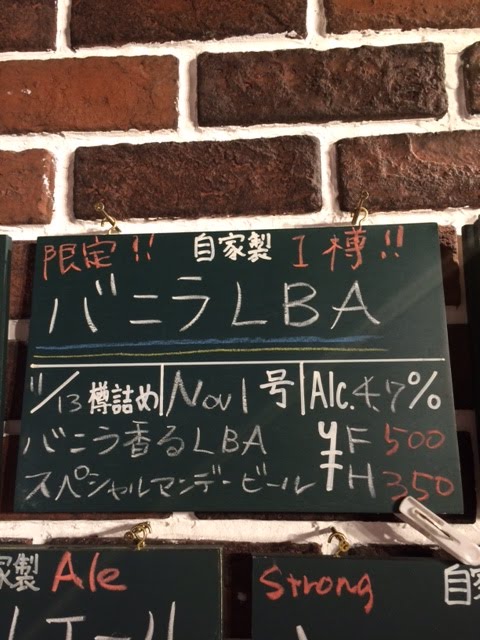 限定!! 自家製 1樽!!
バニラLBA
11/13 樽詰め Nov1号 Alc.4.7%
バニラ香るLBA ¥F500
スペシャルマンデービール ¥H350
家製 Ale
Strong 自